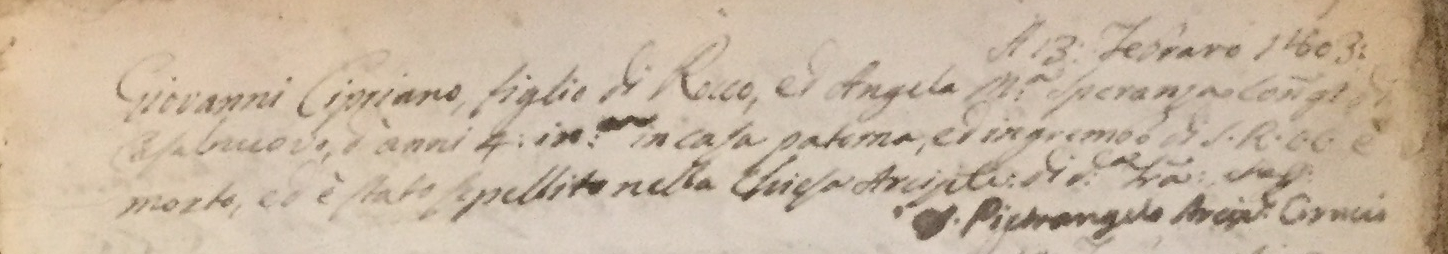 A 13: Febraro 1803:
Giovanni Cipriano, figlio di Rocco, ed Angela M.ª Speranza Coñgi di
Casalnuovo, d'anni 4: in: in casa paterna, ed in gremio di S. R. CC è
morto, ed è stato sepellito nella Chiesa Arcip̃le: di d.ª Trã:
Pietrangelo Arcip.e